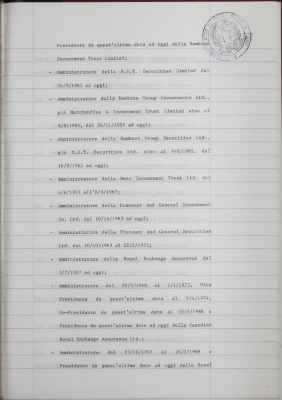 Presidente da quest'ultima data ad oggi della Hambros
Investment Trust Limited;
- Amministratore della H.I.T. Securities Limited dal
24/9/1963 ad oggi;
- Amministratore della Hambros Group Investments Ltd.,
già Merchandise & Investment Trust Limited sino al
9/8/1985, dal 26/11/1959 ad oggi;
- Amministratore della Hambros Group Securities Ltd.,
già H.I.T. Securities Ltd. sino al 9/8/1985, dal
16/8/1961 ad oggi;
- Amministratore della Investment Trust Ltd. dal
4/6/1957 all'8/9/1967;
- Amministratore della Discount and General Investment
Co. Ltd. dal 10/10/1963 ad oggi;
- Amministratore della Discount and General Securities
Ltd. dal 10/10/1963 al 22/2/1973;
- Amministratore della Royal Exchange Assurance dal
3/7/1957 ad oggi;
- Amministratore dal 20/5/1968 al 1/1/1972, Vice
Presidente da quest'ultima data al 3/4/1974,
Co-Presidente da quest'ultima data al 25/5/1988 e
Presidente da quest'ultima data ad oggi della Guardian
Royal Exchange Assurance Ltd.;
- Amministratore dal 23/10/1957 al 26/2/1968 e
Presidente da quest'ultima data ad oggi della Royal